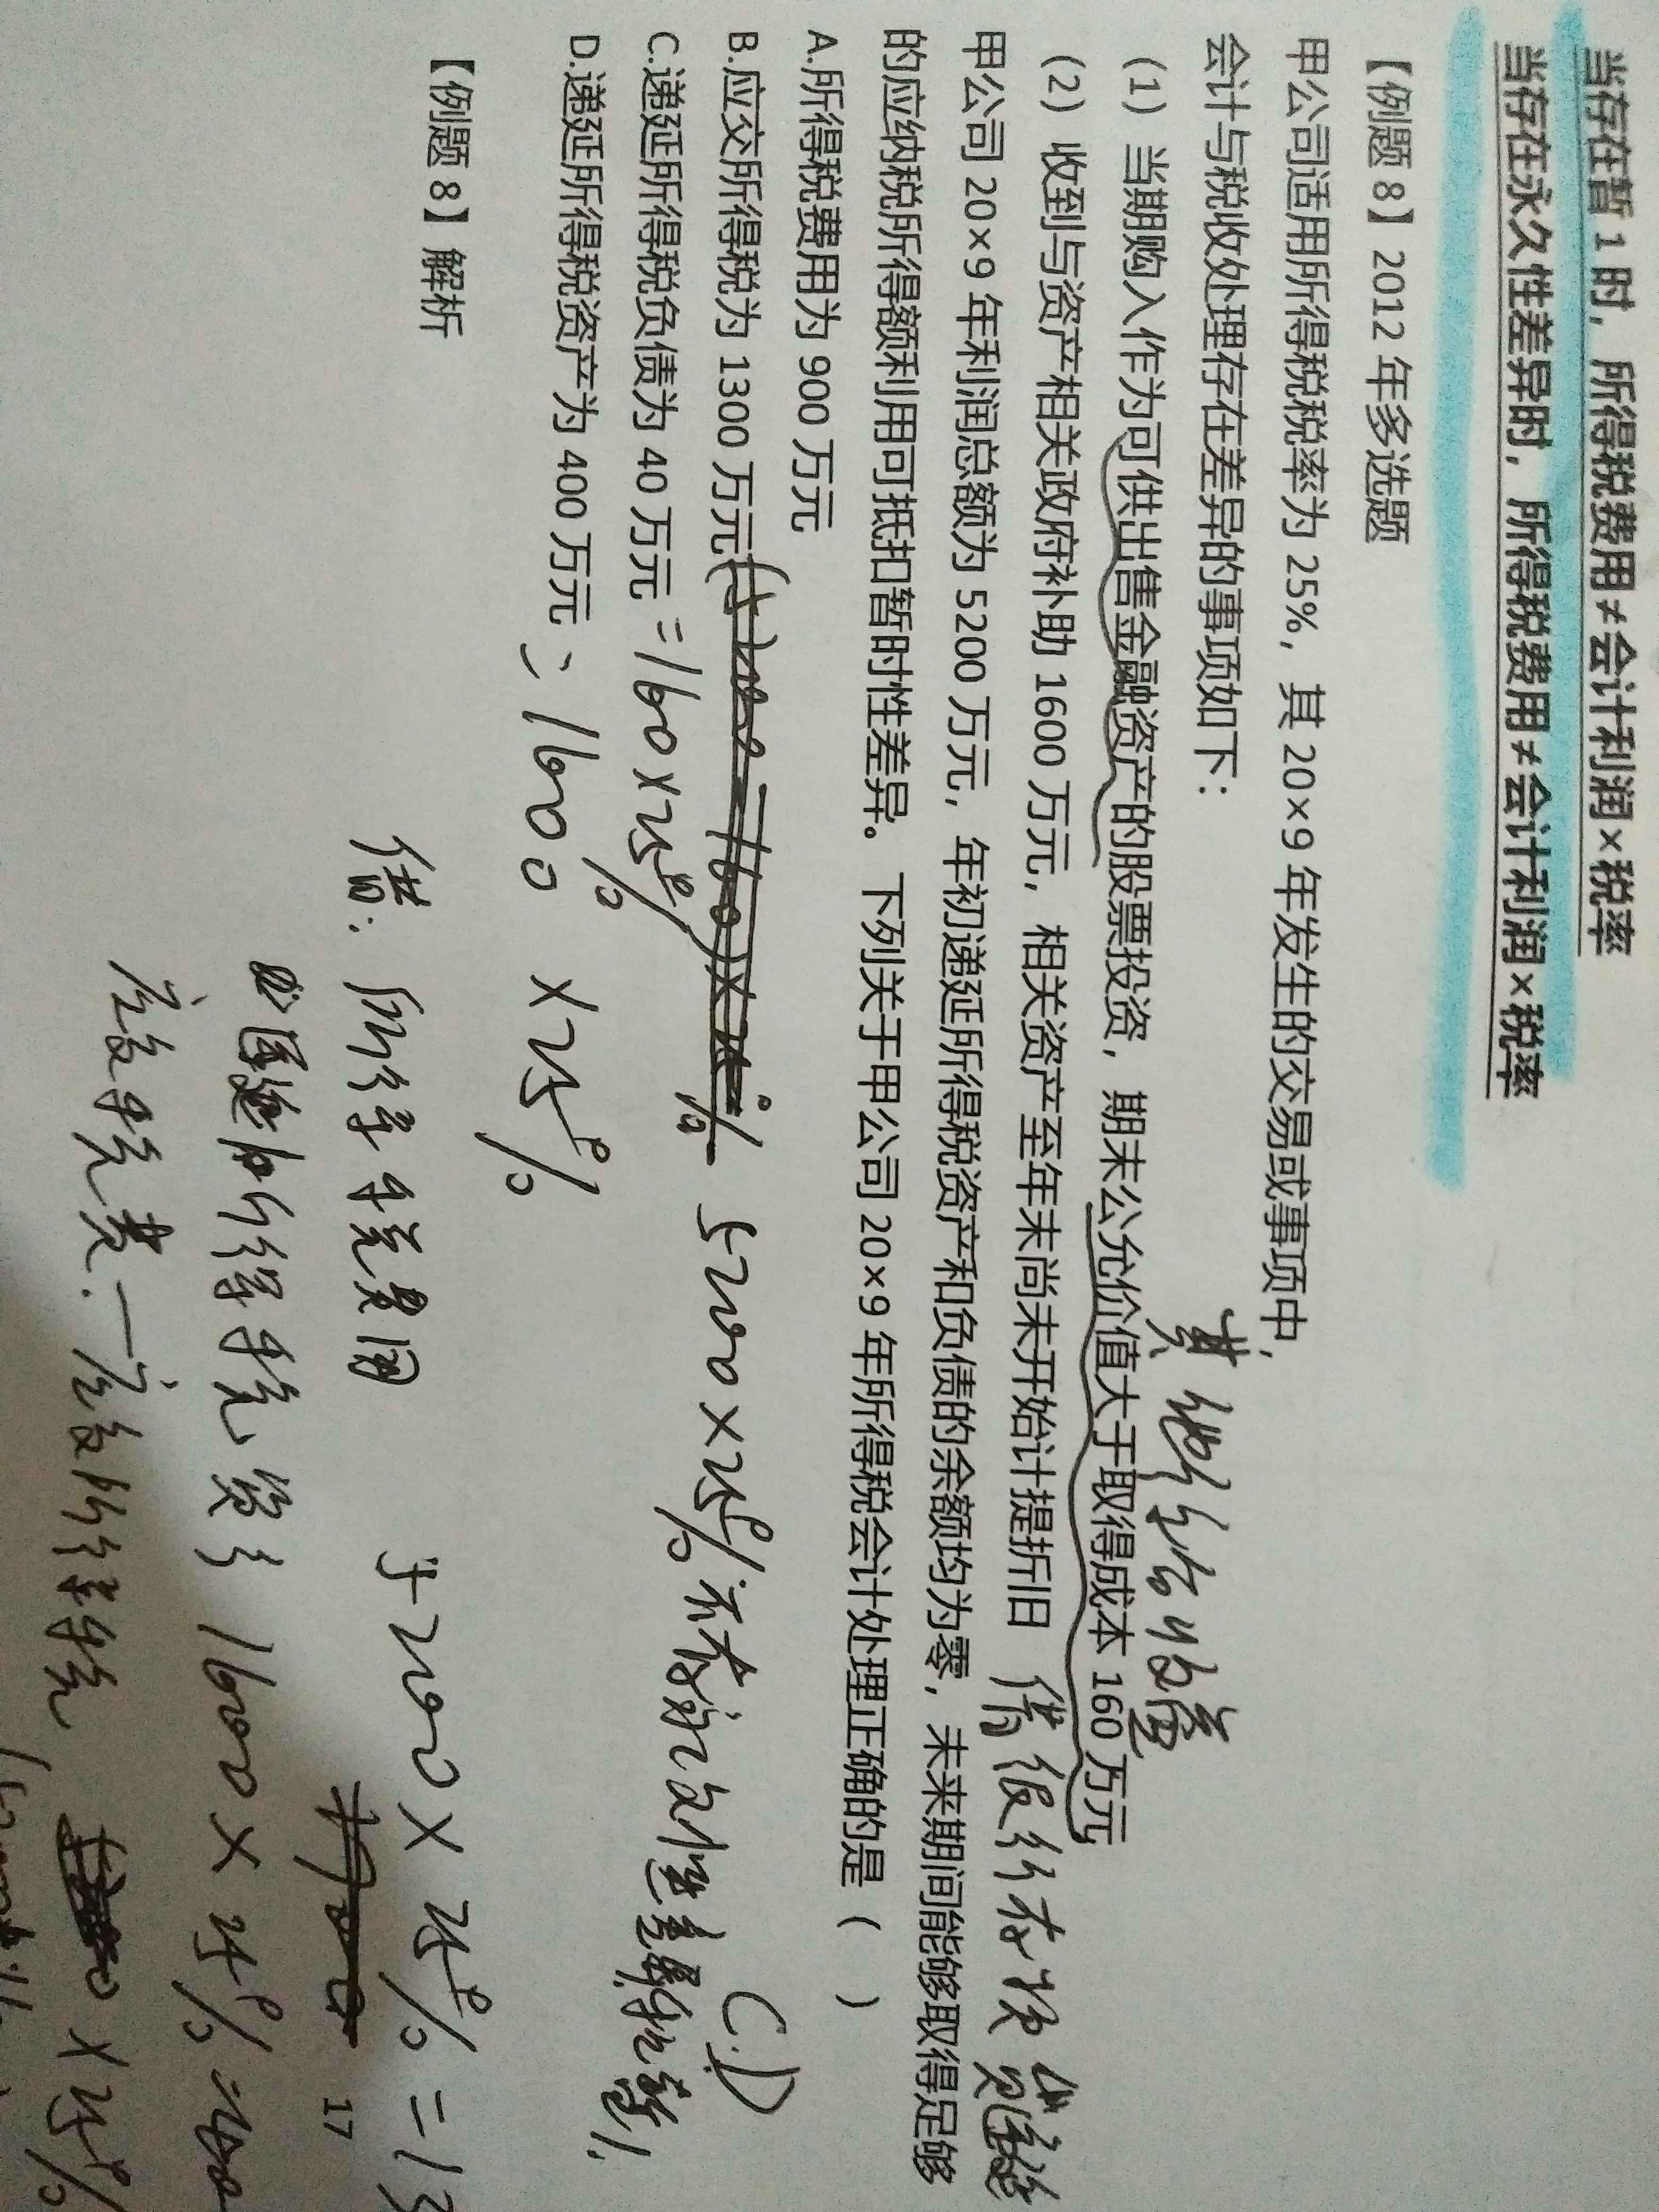 当存在暂1时，所得税费用≠会计利润×税率
当存在永久性差异时，所得税费用≠会计利润×税率
【例题 8】2012 年多选题
甲公司适用所得税税率为 25%，其 20×9 年发生的交易或事项中，
会计与税收处理存在差异的事项如下：
其他综合收益
（1）当期购入作为可供出售金融资产的股票投资，期末公允价值大于取得成本 160 万元
（2）收到与资产相关政府补助 1600 万元，相关资产至年末尚未开始计提折旧 借 银行存款 贷 递延
甲公司 20×9 年利润总额为 5200 万元，年初递延所得税资产和负债的余额均为零，未来期间能够取得足够
的应纳税所得额利用可抵扣暂时性差异。下列关于甲公司 20×9 年所得税会计处理正确的是（ ）
A.所得税费用为 900 万元
C.D
B.应交所得税为 1300 万元 5200×25%
C.递延所得税负债为 40 万元 =160×25%
D.递延所得税资产为 400 万元 1600 ×25%
【例题 8】解析
借：所得税费用 5200×25%=13
递延所得税资产 1600×25%=400
应交税费-应交所得税 ×25%
17